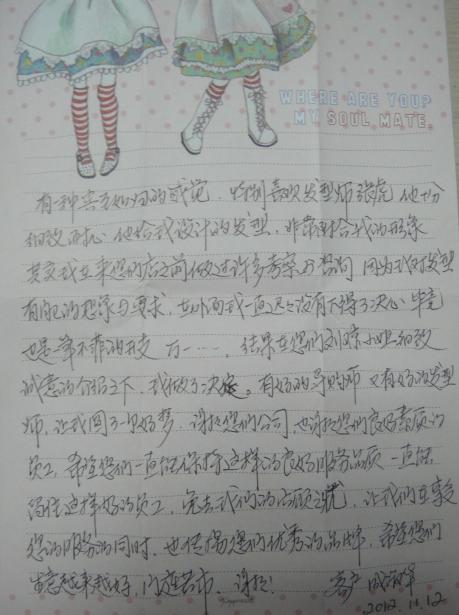 WHERE ARE YOU?
MY SOUL MATE.
有一种宾至如归的感觉，特别喜欢发型师张虎 他十分
细致耐心 他给我设计的发型，非常附合我的形象
其实我在来您的店之前做过许多考察与咨询 因为我对发型
有自己的想象与要求，在外面我一直迟迟没有下得了决心 毕竟
也是笔不菲的开支 万一……，结果在您的刘琼小姐细致
诚意的介绍之下，我做了决定。有好的导购师 又有好的发型
师，让我圆了一个好梦，谢谢您们公司 也谢谢您们良好素质的
员工 希望您们一直能保持这样的良好服务品质 一直能
留住这样好的员工，免去我们的后顾之忧，让我们在享受
您的服务的同时，也传播您们优秀的品牌，希望您们
生意越来越好，门庭若市，谢谢！ 客户
2012.11.12